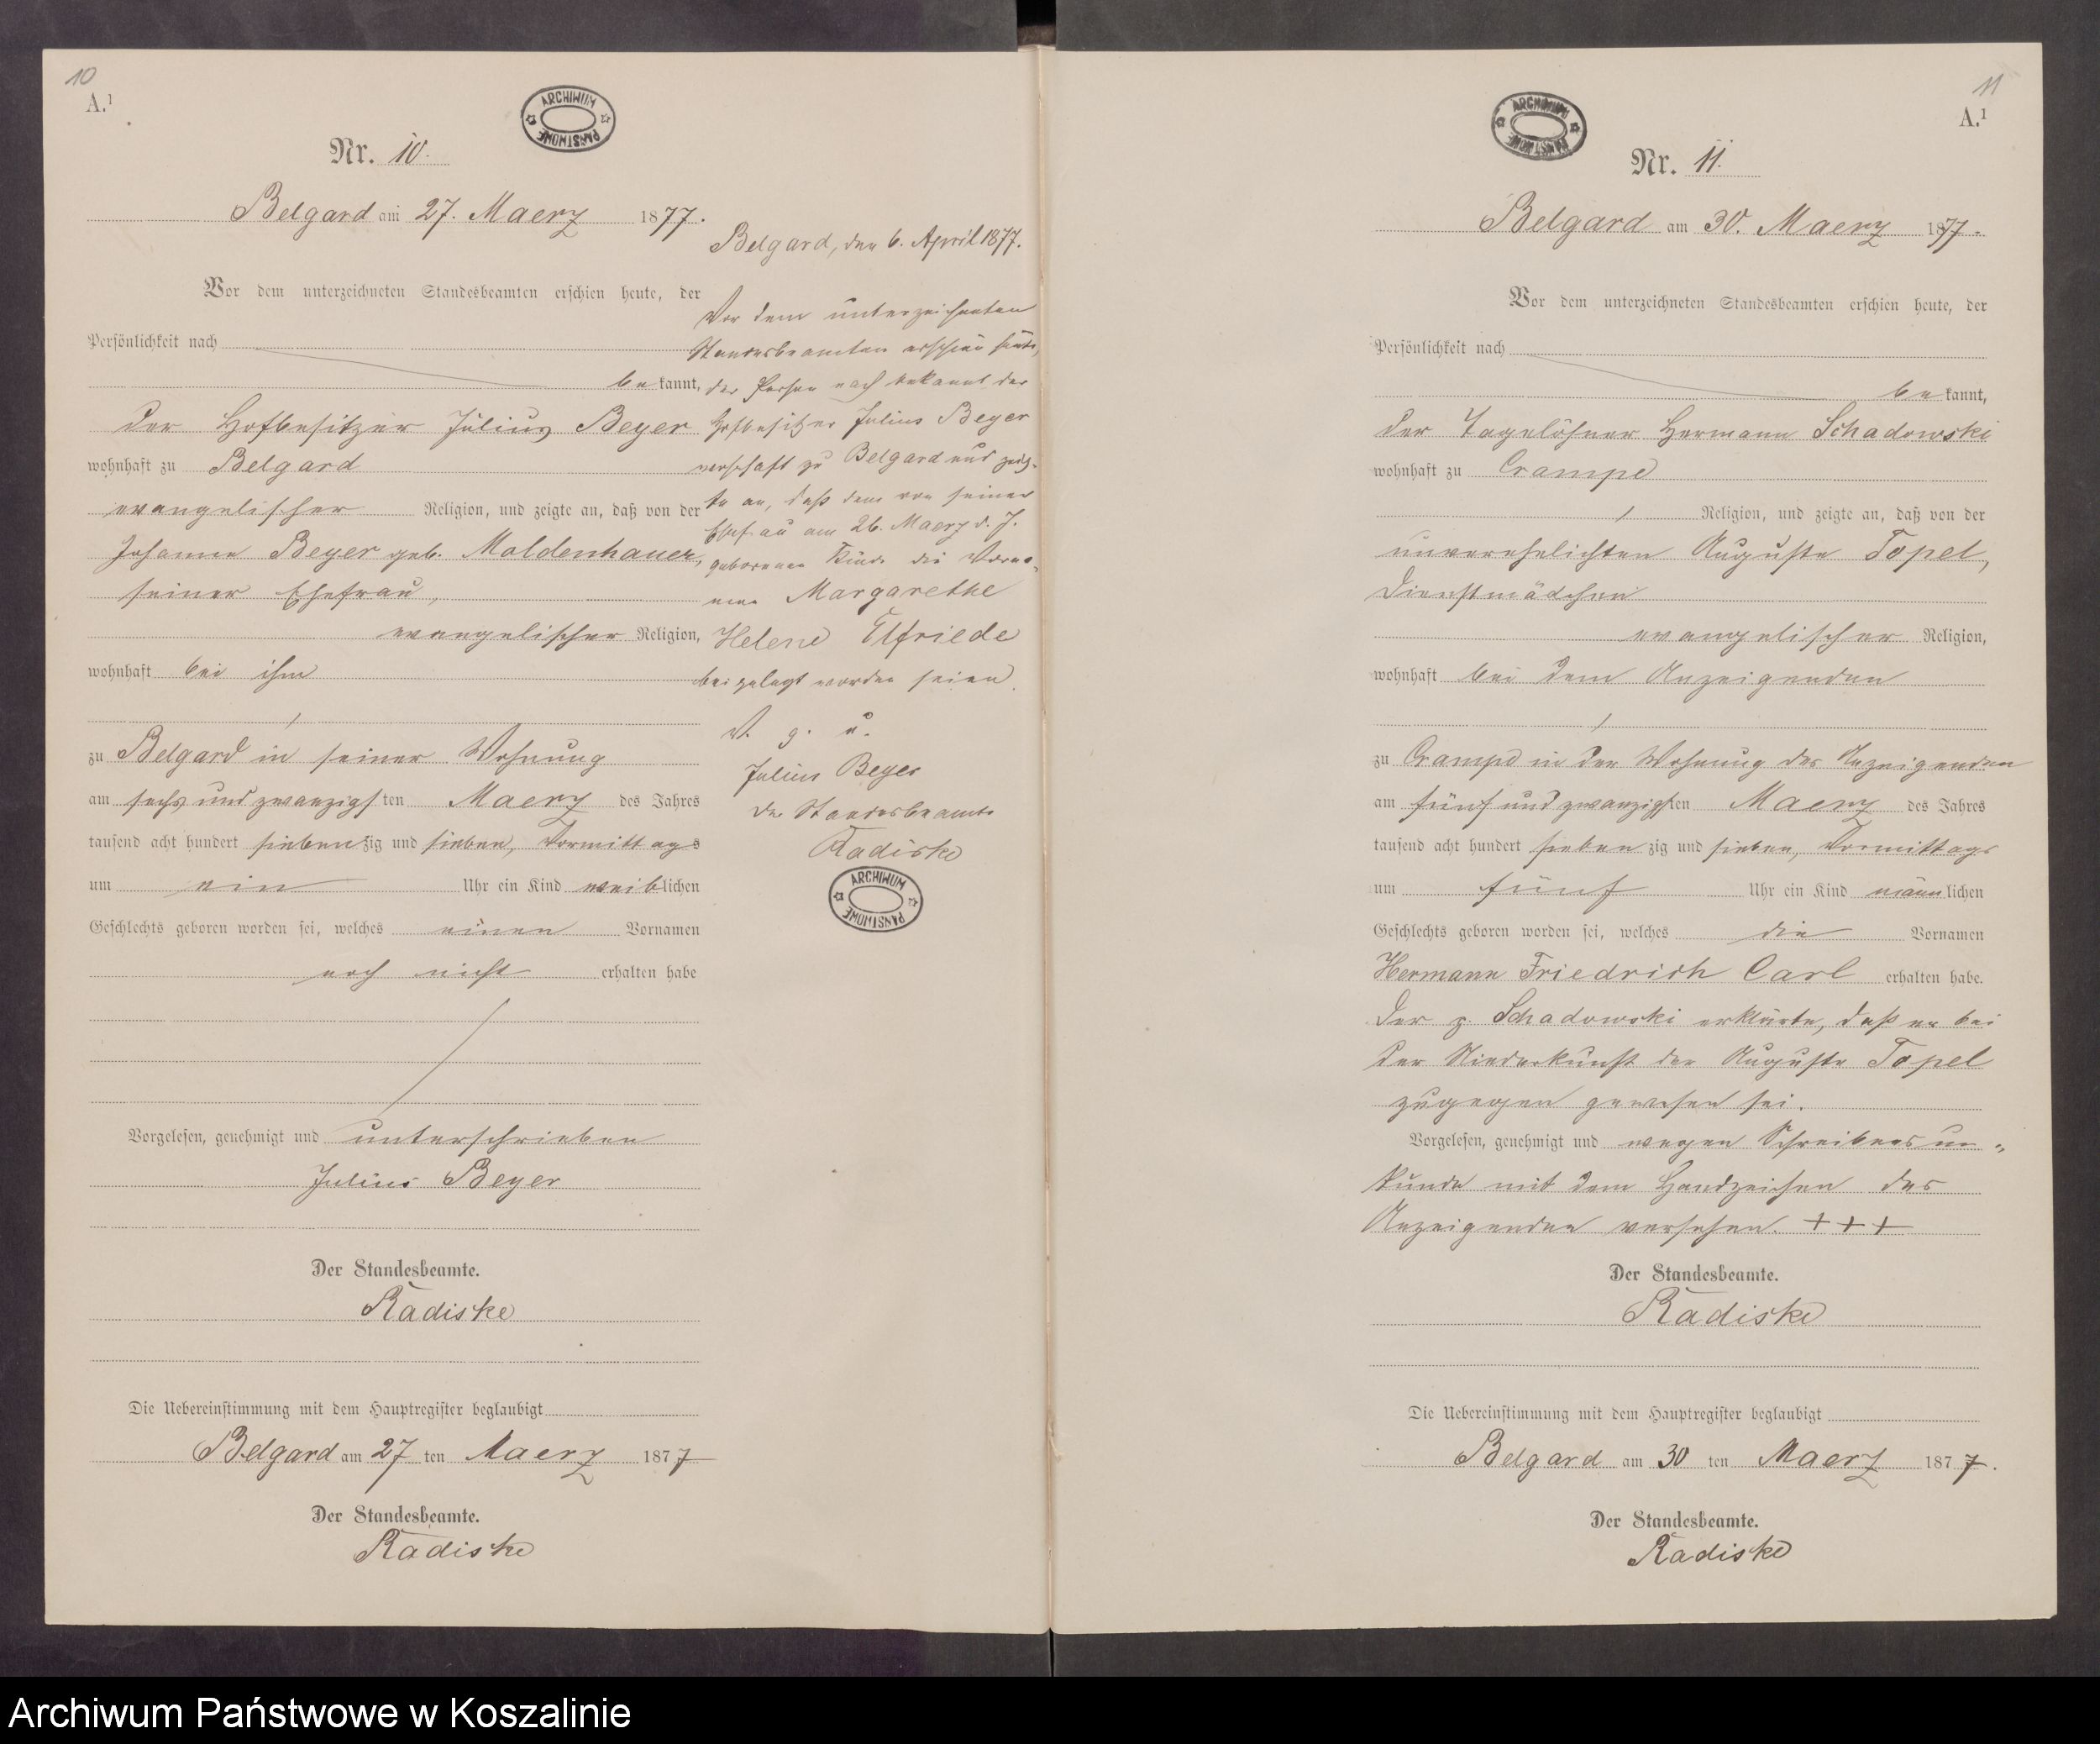 10
A.¹
ARCHIWUM PAŃSTWOWE
Nr. 10.
Belgard am 27. Maerz 1877.
Vor dem unterzeichneten Standesbeamten erschien heute, der
Persönlichkeit nach
bekannt,
der Hofbesitzer Julius Beyer
wohnhaft zu Belgard
evangelischer Religion, und zeigte an, daß von der
Johanne Beyer geb. Moldenhauer,
seiner Ehefrau,
evangelischer Religion,
wohnhaft bei ihm
zu Belgard in seiner Wohnung
am sechs und zwanzigsten Maerz des Jahres
tausend acht hundert siebenzig und sieben, Vormittags
um ein Uhr ein Kind weiblichen
Geschlechts geboren worden sei, welches einen Vornamen
noch nicht erhalten habe
Vorgelesen, genehmigt und unterschrieben
Julius Beyer
Der Standesbeamte.
Radiske
Die Uebereinstimmung mit dem Hauptregister beglaubigt
Belgard am 27 ten Maerz 1877
Der Standesbeamte.
Radiske
Belgard, den 6. April 1877.
Vor dem unterzeichneten
Standesbeamten erschien heute,
der Person nach bekannt der
Hofbesitzer Julius Beyer
wohnhaft zu Belgard und zeig-
te an, daß dem von seiner
Ehefrau am 26. Maerz d. J.
geborenen Kinde die Vorna-
men Margarethe
Helene Elfriede
beigelegt worden seien.
V. g. u.
Julius Beyer
Der Standesbeamte
Radiske
ARCHIWUM PAŃSTWOWE
11
A.¹
ARCHIWUM PAŃSTWOWE
Nr. 11.
Belgard am 30. Maerz 1877.
Vor dem unterzeichneten Standesbeamten erschien heute, der
Persönlichkeit nach
bekannt,
der Tagelöhner Hermann Schadowski
wohnhaft zu Crampe
Religion, und zeigte an, daß von der
unverehelichten Auguste Topel,
Dienstmädchen
evangelischer Religion,
wohnhaft bei dem Anzeigenden
zu Crampe in der Wohnung des Anzeigenden
am fünf und zwanzigsten Maerz des Jahres
tausend acht hundert siebenzig und sieben, Vormittags
um fünf Uhr ein Kind männlichen
Geschlechts geboren worden sei, welches die Vornamen
Hermann Friedrich Carl erhalten habe.
Der p. Schadowski erklärte, daß er bei
der Niederkunft der Auguste Topel
zugegen gewesen sei.
Vorgelesen, genehmigt und wegen Schreibensun-
kunde mit dem Handzeichen des
Anzeigenden versehen. +++
Der Standesbeamte.
Radiske
Die Uebereinstimmung mit dem Hauptregister beglaubigt
Belgard am 30 ten Maerz 1877.
Der Standesbeamte.
Radiske
Archiwum Państwowe w Koszalinie